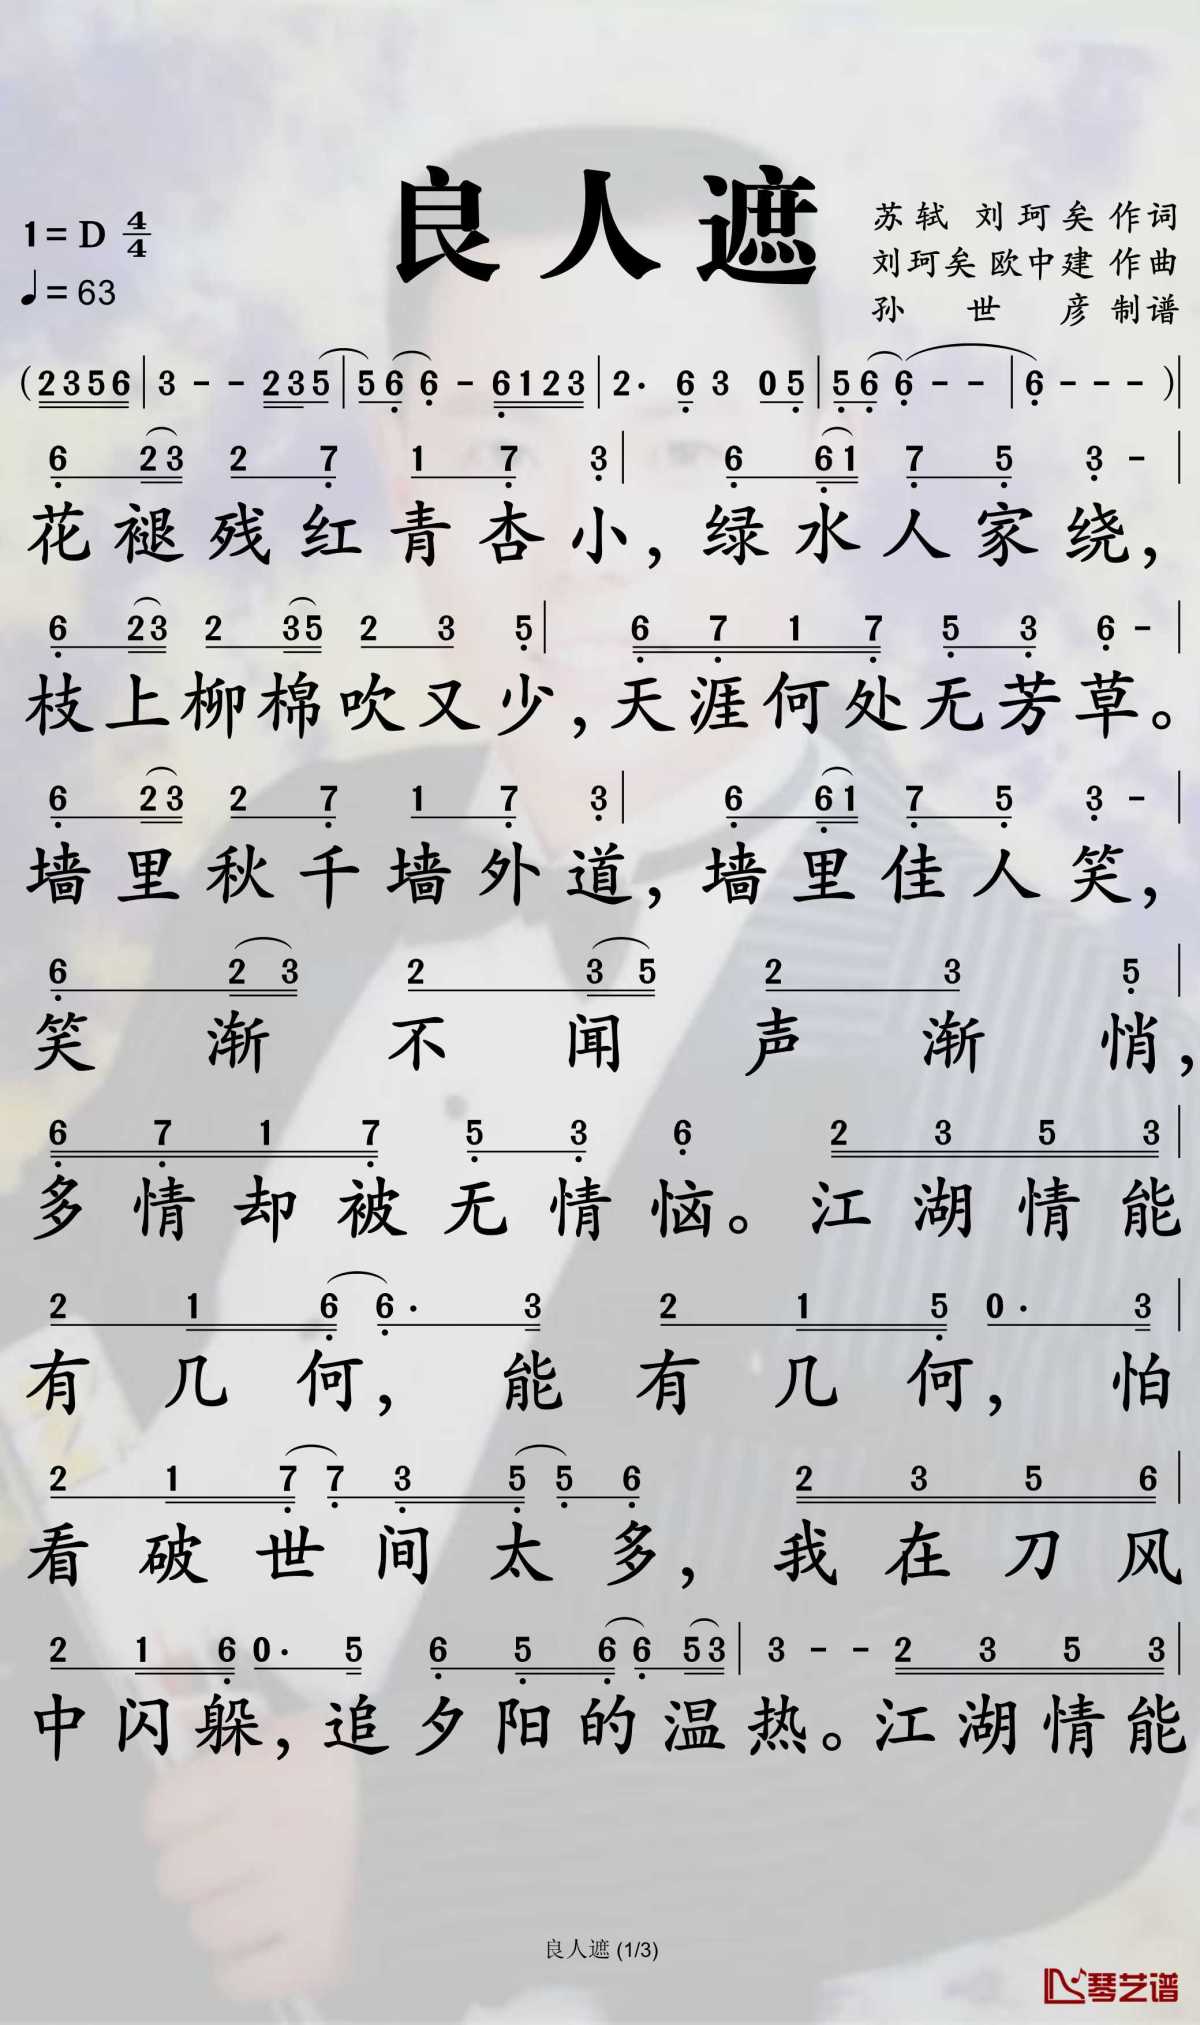 良人遮
1=D 4/4
♩=63
苏轼 刘珂矣作词
刘珂矣 欧中建 作曲
孙世彦制谱
(2356|3--235|566-6123|2·6305|566--|6---)|
6 23 2 7 1 7 3| 6 61 7 5 3 -|
花褪残红青杏小,绿水人家绕,
6 23 2 35 2 3 5| 6 7 1 7 5 3 6 -|
枝上柳棉吹又少,天涯何处无芳草。
6 23 2 7 1 7 3| 6 61 7 5 3 -|
墙里秋千墙外道,墙里佳人笑,
6 2 3 2 3 5 2 3 5|
笑渐不闻声渐悄,
6 7 1 7 5 3 6 2 3 5 3|
多情却被无情恼。江湖情能
2 1 6 6· 3 2 1 5 0· 3|
有几何,能有几何,怕
2 1 7 7 3 5 5 6 2 3 5 6|
看破世间太多,我在刀风
2 1 6 0· 5 6 5 6 6 53| 3 - - 2 3 5 3|
中闪躲,追夕阳的温热。江湖情能
良人遮 (1/3)
琴艺谱